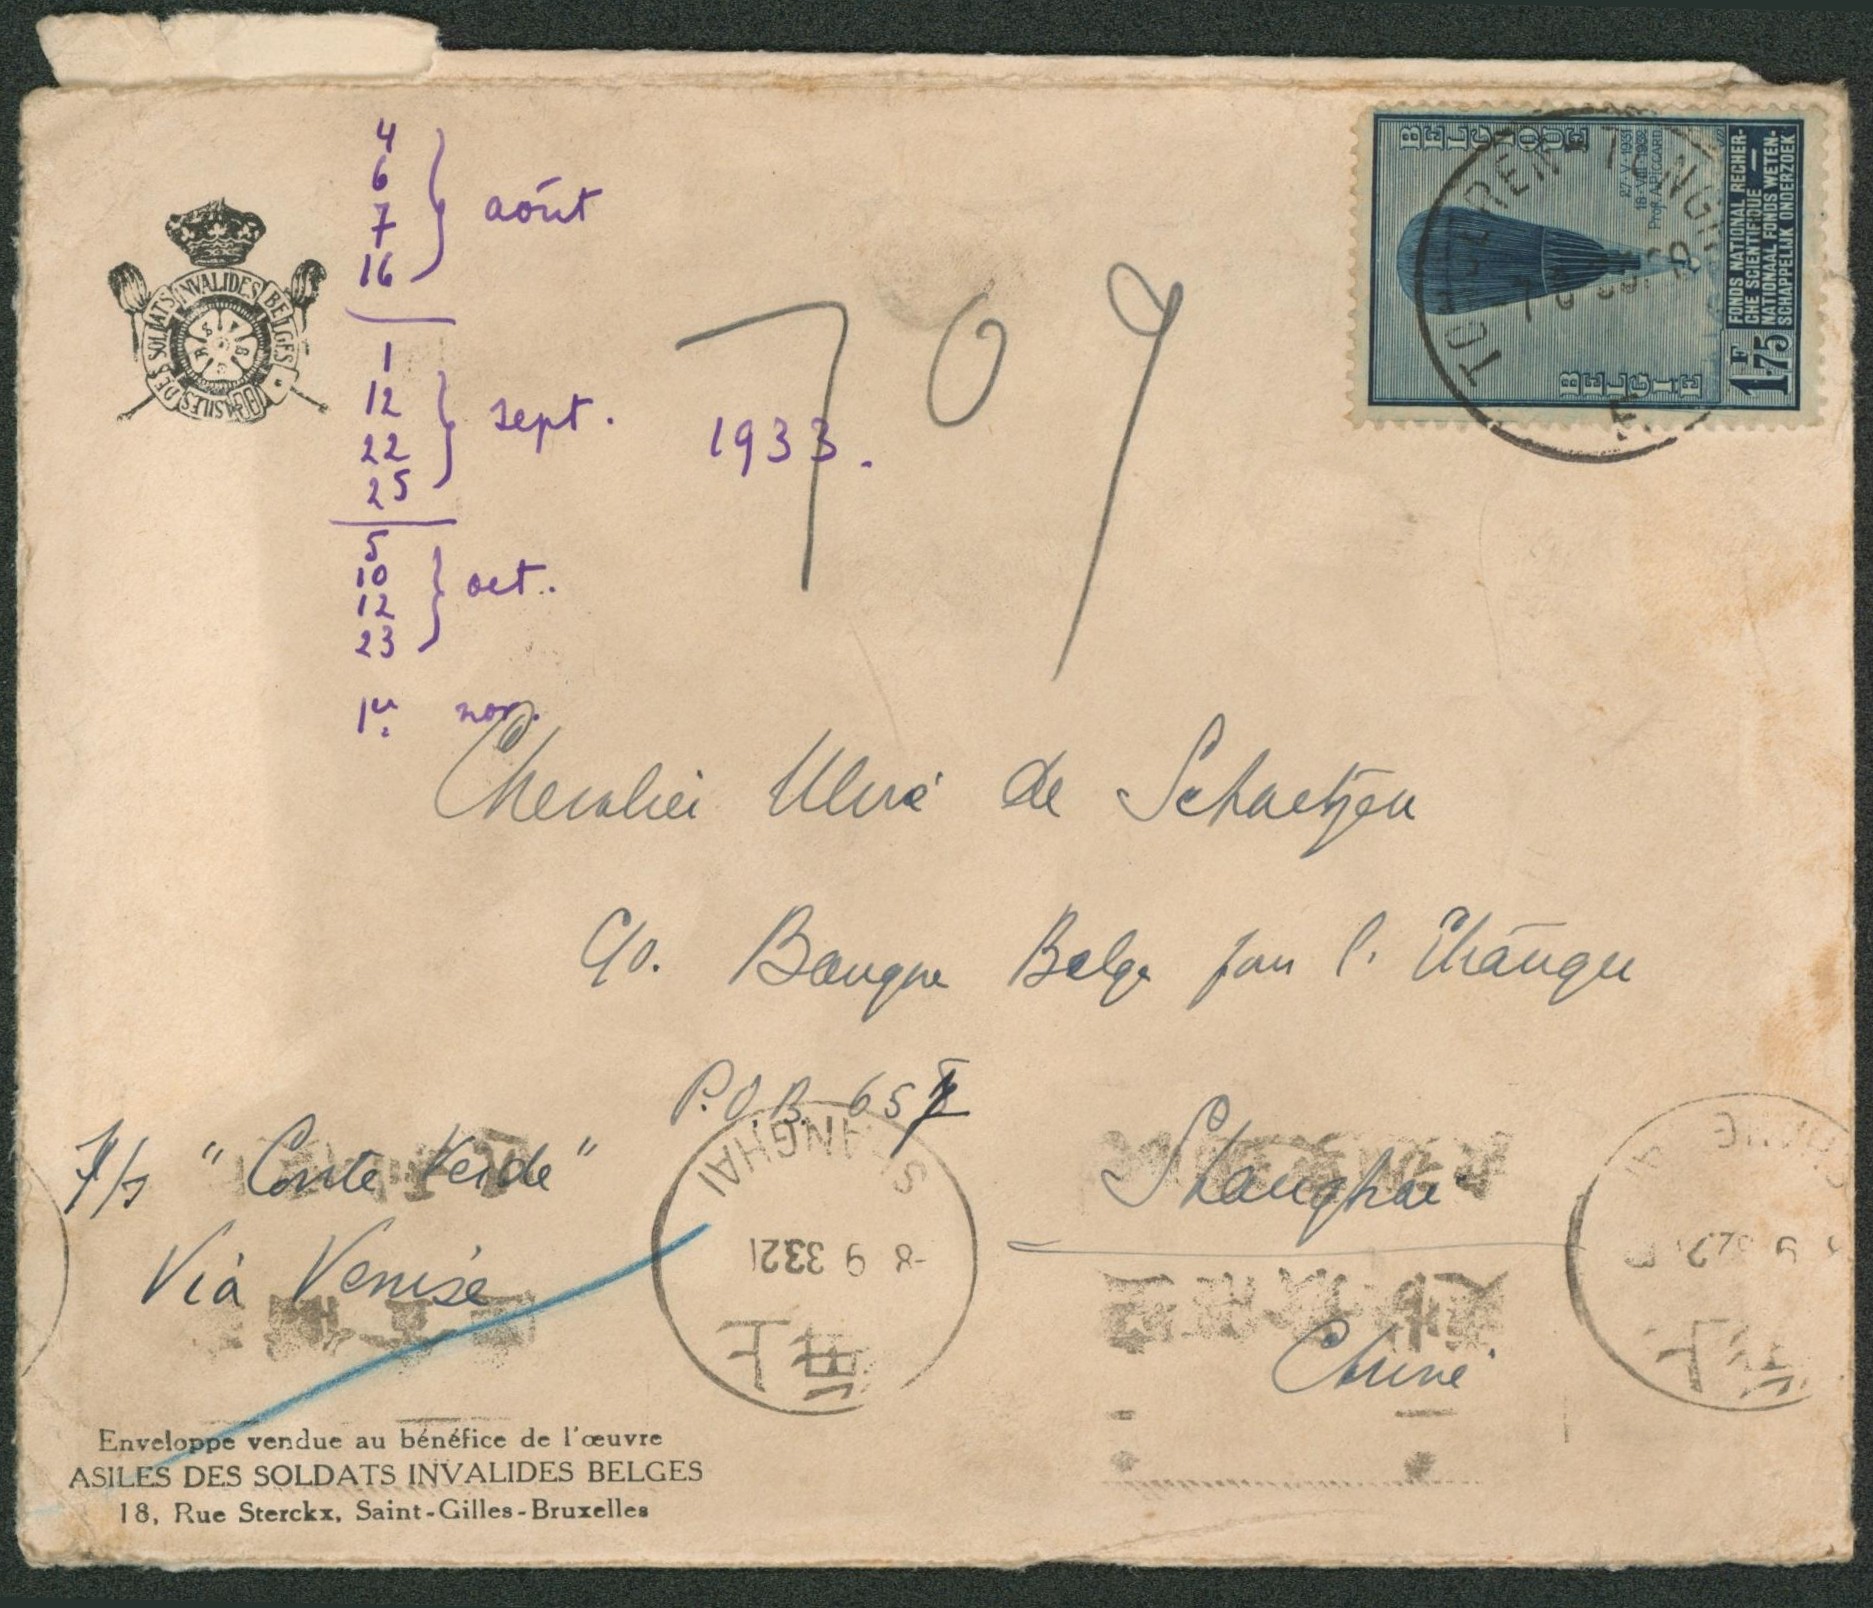 4
6
7
16
août
1
12
22
25
sept.
1933.
5
10
12
23
oct.
1er nov.
709
ASILES DES SOLDATS INVALIDES BELGES
BELGIQUE
27·V·1931
18·VIII·1932
Prof. A. PICCARD
BELGIE
1F75
FONDS NATIONAL RECHER-
CHE SCIENTIFIQUE —
NATIONAAL FONDS WETEN-
SCHAPPELIJK ONDERZOEK
TONGEREN TONGRES
Chevalier de Schaetzen
c/o. Banque Belge pour l'Etranger
P.O.B. 657
Shanghai
Chine
"Conte Verde"
Via Venise
SHANGHAI
-8 9 33 21
上海
Enveloppe vendue au bénéfice de l'œuvre
ASILES DES SOLDATS INVALIDES BELGES
18, Rue Sterckx, Saint-Gilles-Bruxelles